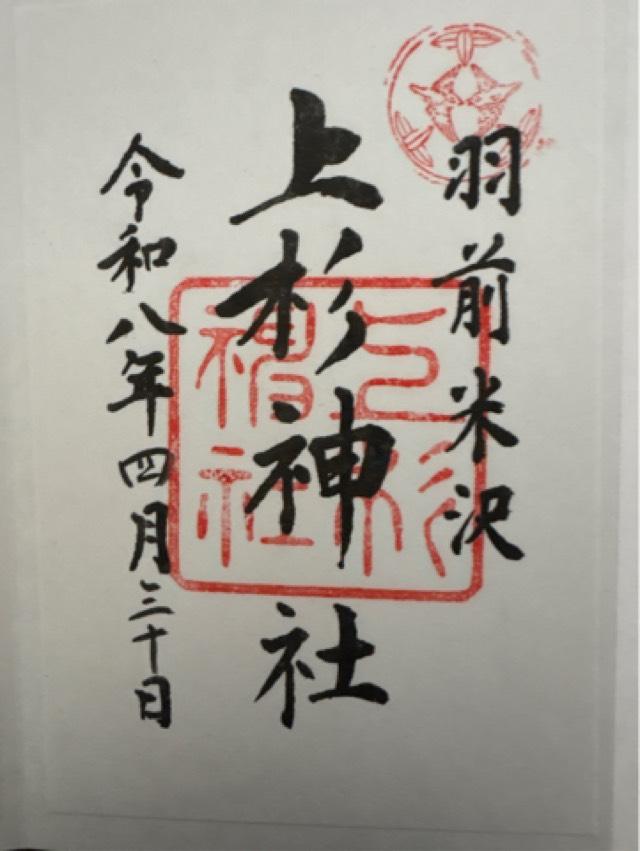 羽前米沢
上杉神社
上杉神社
令和八年四月三十日